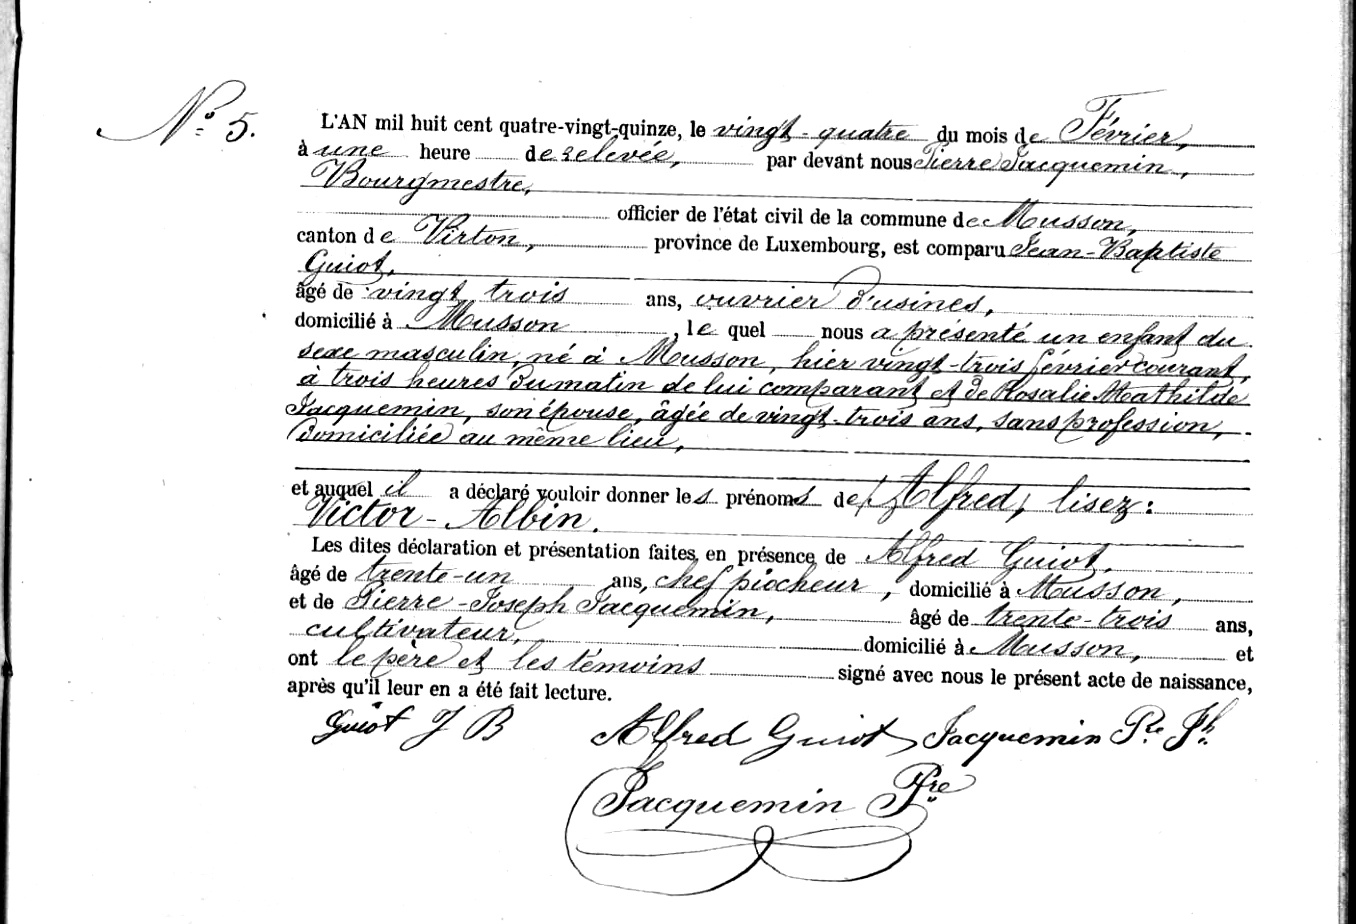 N.o 5.
L'AN mil huit cent quatre-vingt-quinze, le vingt-quatre du mois de Février,
à une heure de relevée, par devant nous Pierre Jacquemin,
Bourgmestre,
officier de l'état civil de la commune de Musson,
canton de Virton, province de Luxembourg, est comparu Jean-Baptiste
Guiot,
âgé de vingt trois ans, ouvrier d'usines,
domicilié à Musson, le quel nous a présenté un enfant du
sexe masculin, né à Musson, hier vingt-trois février courant,
à trois heures du matin de lui comparant et de Rosalie Mathilde
Jacquemin, son épouse, âgée de vingt-trois ans, sans profession,
domiciliée au même lieu,
et auquel il a déclaré vouloir donner les prénoms de (Alfred) lisez:
Victor-Albin.
Les dites déclaration et présentation faites en présence de Alfred Guiot,
âgé de trente-un ans, chef piocheur, domicilié à Musson,
et de Pierre-Joseph Jacquemin, âgé de trente-trois ans,
cultivateur, domicilié à Musson, et
ont le père et les témoins signé avec nous le présent acte de naissance,
après qu'il leur en a été fait lecture.
Guiot J B Alfred Guiot Jacquemin Pre Jh
Jacquemin Pre